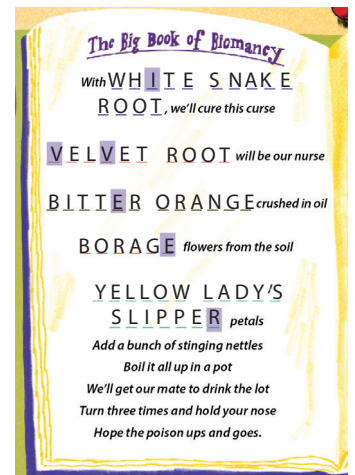 The Big Book of Biomancy
With WHITE SNAKE
ROOT, we'll cure this curse
VELVET ROOT will be our nurse
BITTER ORANGE crushed in oil
BORAGE flowers from the soil
YELLOW LADY'S
SLIPPER petals
Add a bunch of stinging nettles
Boil it all up in a pot
We'll get our mate to drink the lot
Turn three times and hold your nose
Hope the poison ups and goes.